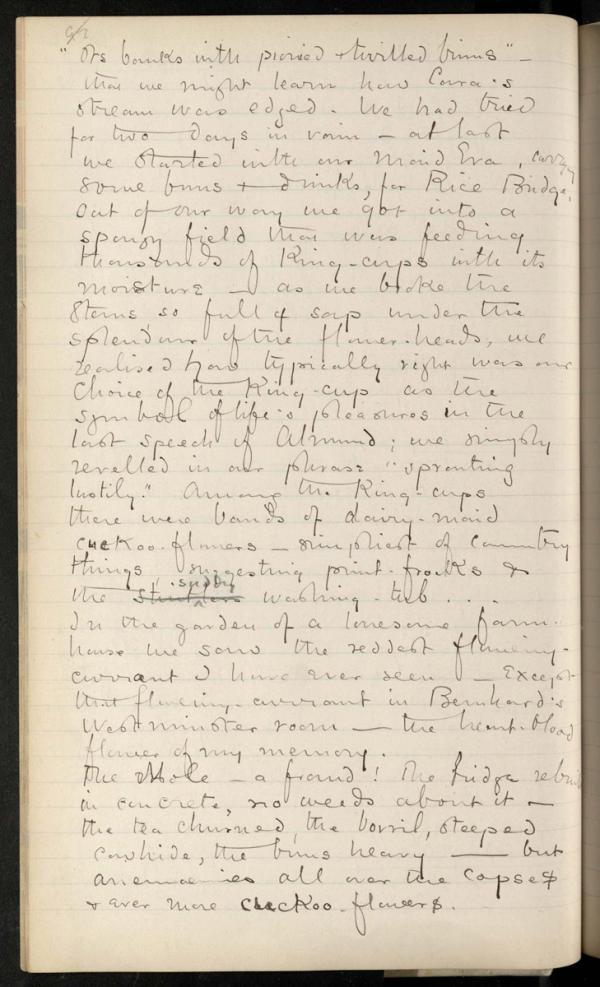 "Its banks with pionied & twilled brims" –
that we might learn how Cora's
stream was edged. We had tried
for two days in vain – at last
we started with our maid Eva, carry
some buns & drinks, for Rice Bridge.
Out of our way we got into a
spongy field that was feeding
thousands of King-cups with its
moisture – as we broke the
stems so full of sap under the
splendour of the flower-heads, we
realised how typically right was our
choice of the King-cup as the
symbol of life's pleasures in the
last speech of Almund; we simply
revelled in our phrase "sprouting
lustily." Among the King-cups
there were bands of dairy-maid
cuckoo-flowers – simpliest of country
things, suggesting print-frocks &
the sudsy washing-tub...
In the garden of a lonesome farm-
house we saw the reddest flowering-
currant I have ever seen – Except
that flowering-currant in Bernhard's
Westminster room – the heart-blood
flower of my memory.
The Whole – a fraud! The bridge rebuilt
in concrete, no weeds about it –
the tea churned, the bovril, steeped
cowhide, the buns heavy – but
anemonies all over the copses
& ever more cuckoo-flowers.